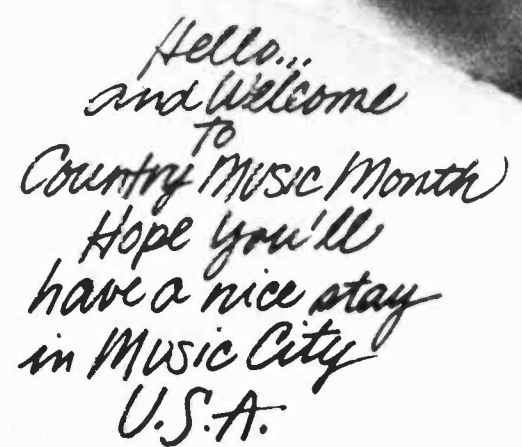 Hello...
and Welcome
To
Country Music Month
Hope you'll
have a nice stay
in Music City
U.S.A.